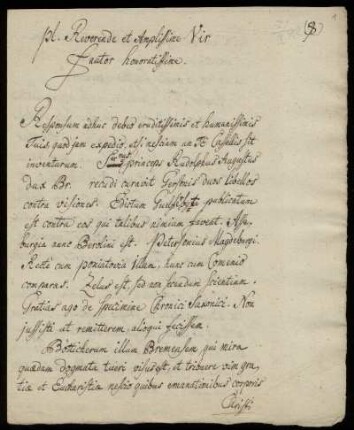 pl. Reverende et Amplissime Vir
Fautor honoratissime.
(8)
Responsum adhuc debeo eruditissimis et humanissimis
Tuis, quod jam expedio, etsi nesciam an Te Cassellis sit
inventurum. Ser.mus princeps Rudolphus Augustus
dux Br. recudi curavit Gersonis duos libellos
contra visiones. Edictum publicatum
est contra eos qui talibus nimium favent. Asse-
burgia nunc Berolini est. Petersenius Magdeburgi.
Recte cum Poniatovia illam, hunc cum Comenio
comparas. Zelus est, sed non secundum scientiam.
Gratias ago de specimine Chronici Saxonici. Non
jussisti ut remitterem, alioqui fecissem.
Botticherum illum Bremensem qui mira
quaedam dogmata tueri visus est, et tribuere vim gra-
tiae et Eucharistiae nescio quibus emanationibus corporis
Christi